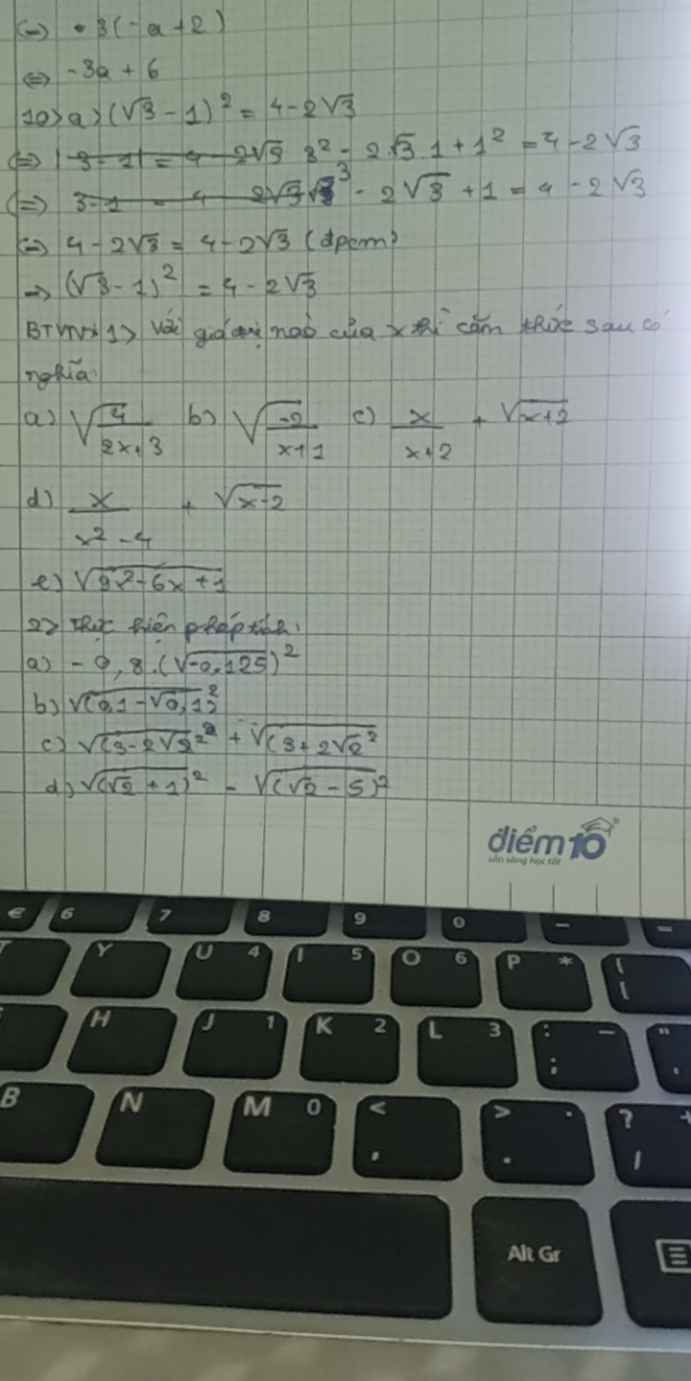 (=) • 3(-a+2)
<=> -3a + 6
10> a> (√3 - 1)² = 4 - 2√3
(=) |3-1| = 4 2√3 3² - 2.√3.1 + 1² = 4 - 2√3
(=) 3-1 = 4 2√3 √3 ³ - 2√3 + 1 = 4 - 2√3
(=) 4 - 2√3 = 4 - 2√3 (đpcm)
=> (√3 - 1)² = 4 - 2√3
BTVN: 1> Với giá trị nào của x thì căn thức sau có
nghĩa:
a) √4/(2x+3) b) √-2/(x+1) c) x/(x+2) + √x+2
d) x/(x²-4) + √x-2
e) √9x²-6x+1
2> Thực hiện phép tính:
a) - 0,8.(√-0,125)²
b) √(0,1-√0,1)²
c) √(3-2√2)² + √(3+2√2)²
d) √(√2+1)² - √(√2-5)²
điểm10
sẵn sàng học tốt
€ 6 7 8 9 0 - =
T Y U 4 I 5 O 6 P * [ [
H J 1 K 2 L 3 : ; - " '
B N M 0 < , > . . ? / +
Alt Gr